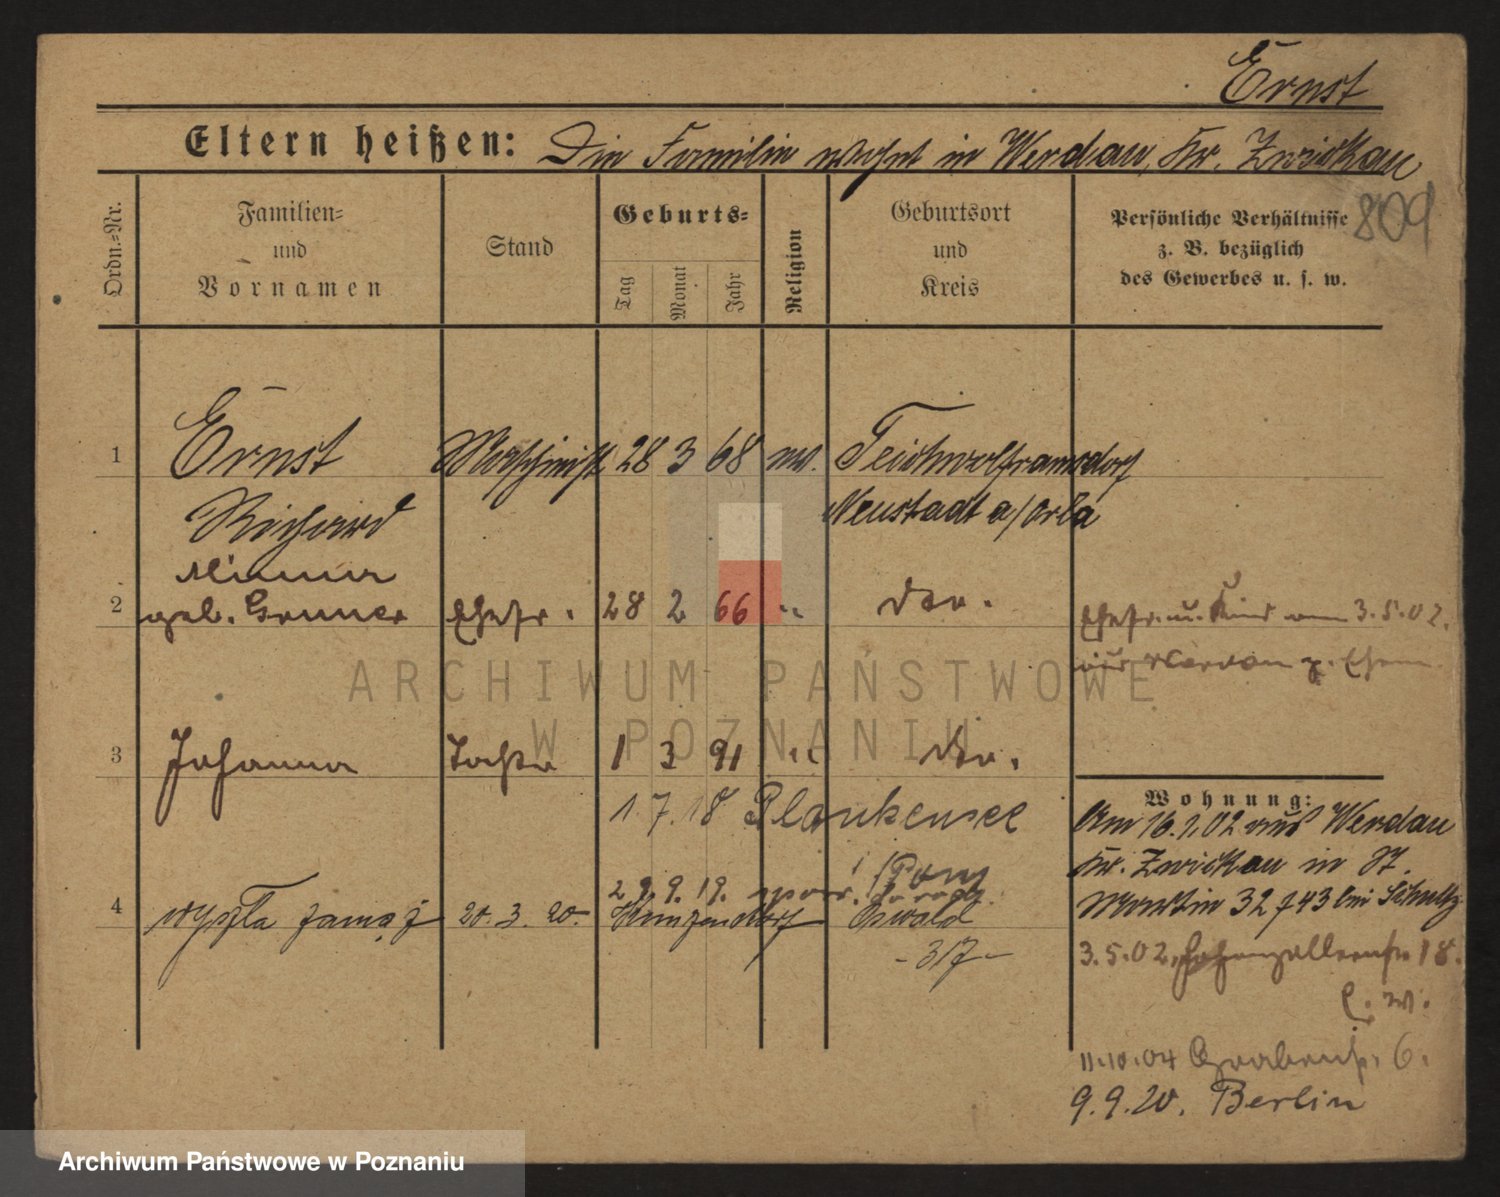 Ernst
Eltern heißen: Die Familie wohnt in Werdau, Kr. Zwickau
809
Ordn.=Nr.
Familien=
und
Vornamen
Stand
Geburts=
Tag
Monat
Jahr
Religion
Geburtsort
und
Kreis
Persönliche Verhältnisse
z. B. bezüglich
des Gewerbes u. s. w.
1 Ernst Maschinist 28 3 68 ev. Teichwolframsdorf
Richard Neustadt a/Orla
Minna
2 geb. Gruner Ehefr. 28 2 66 " Ehefr. u. Kind am 3.5.02.
aus Werdau z. Ehem.
3 Johanna Tochter 1 3 91 "
1.7.18 Plankensee
Wohnung:
Am 16.1.02 aus Werdau
Kr. Zwickau in St.
Martin 32 bei Schultz
29.9.19.
4 20.3.20. Kunzendorf Oswald
- 317 -
3.5.02. Hohenzollernstr. 18.
E. W.
11.10.04 Grabenstr. 6.
9.9.20. Berlin
ARCHIWUM PAŃSTWOWE
W POZNANIU
Archiwum Państwowe w Poznaniu